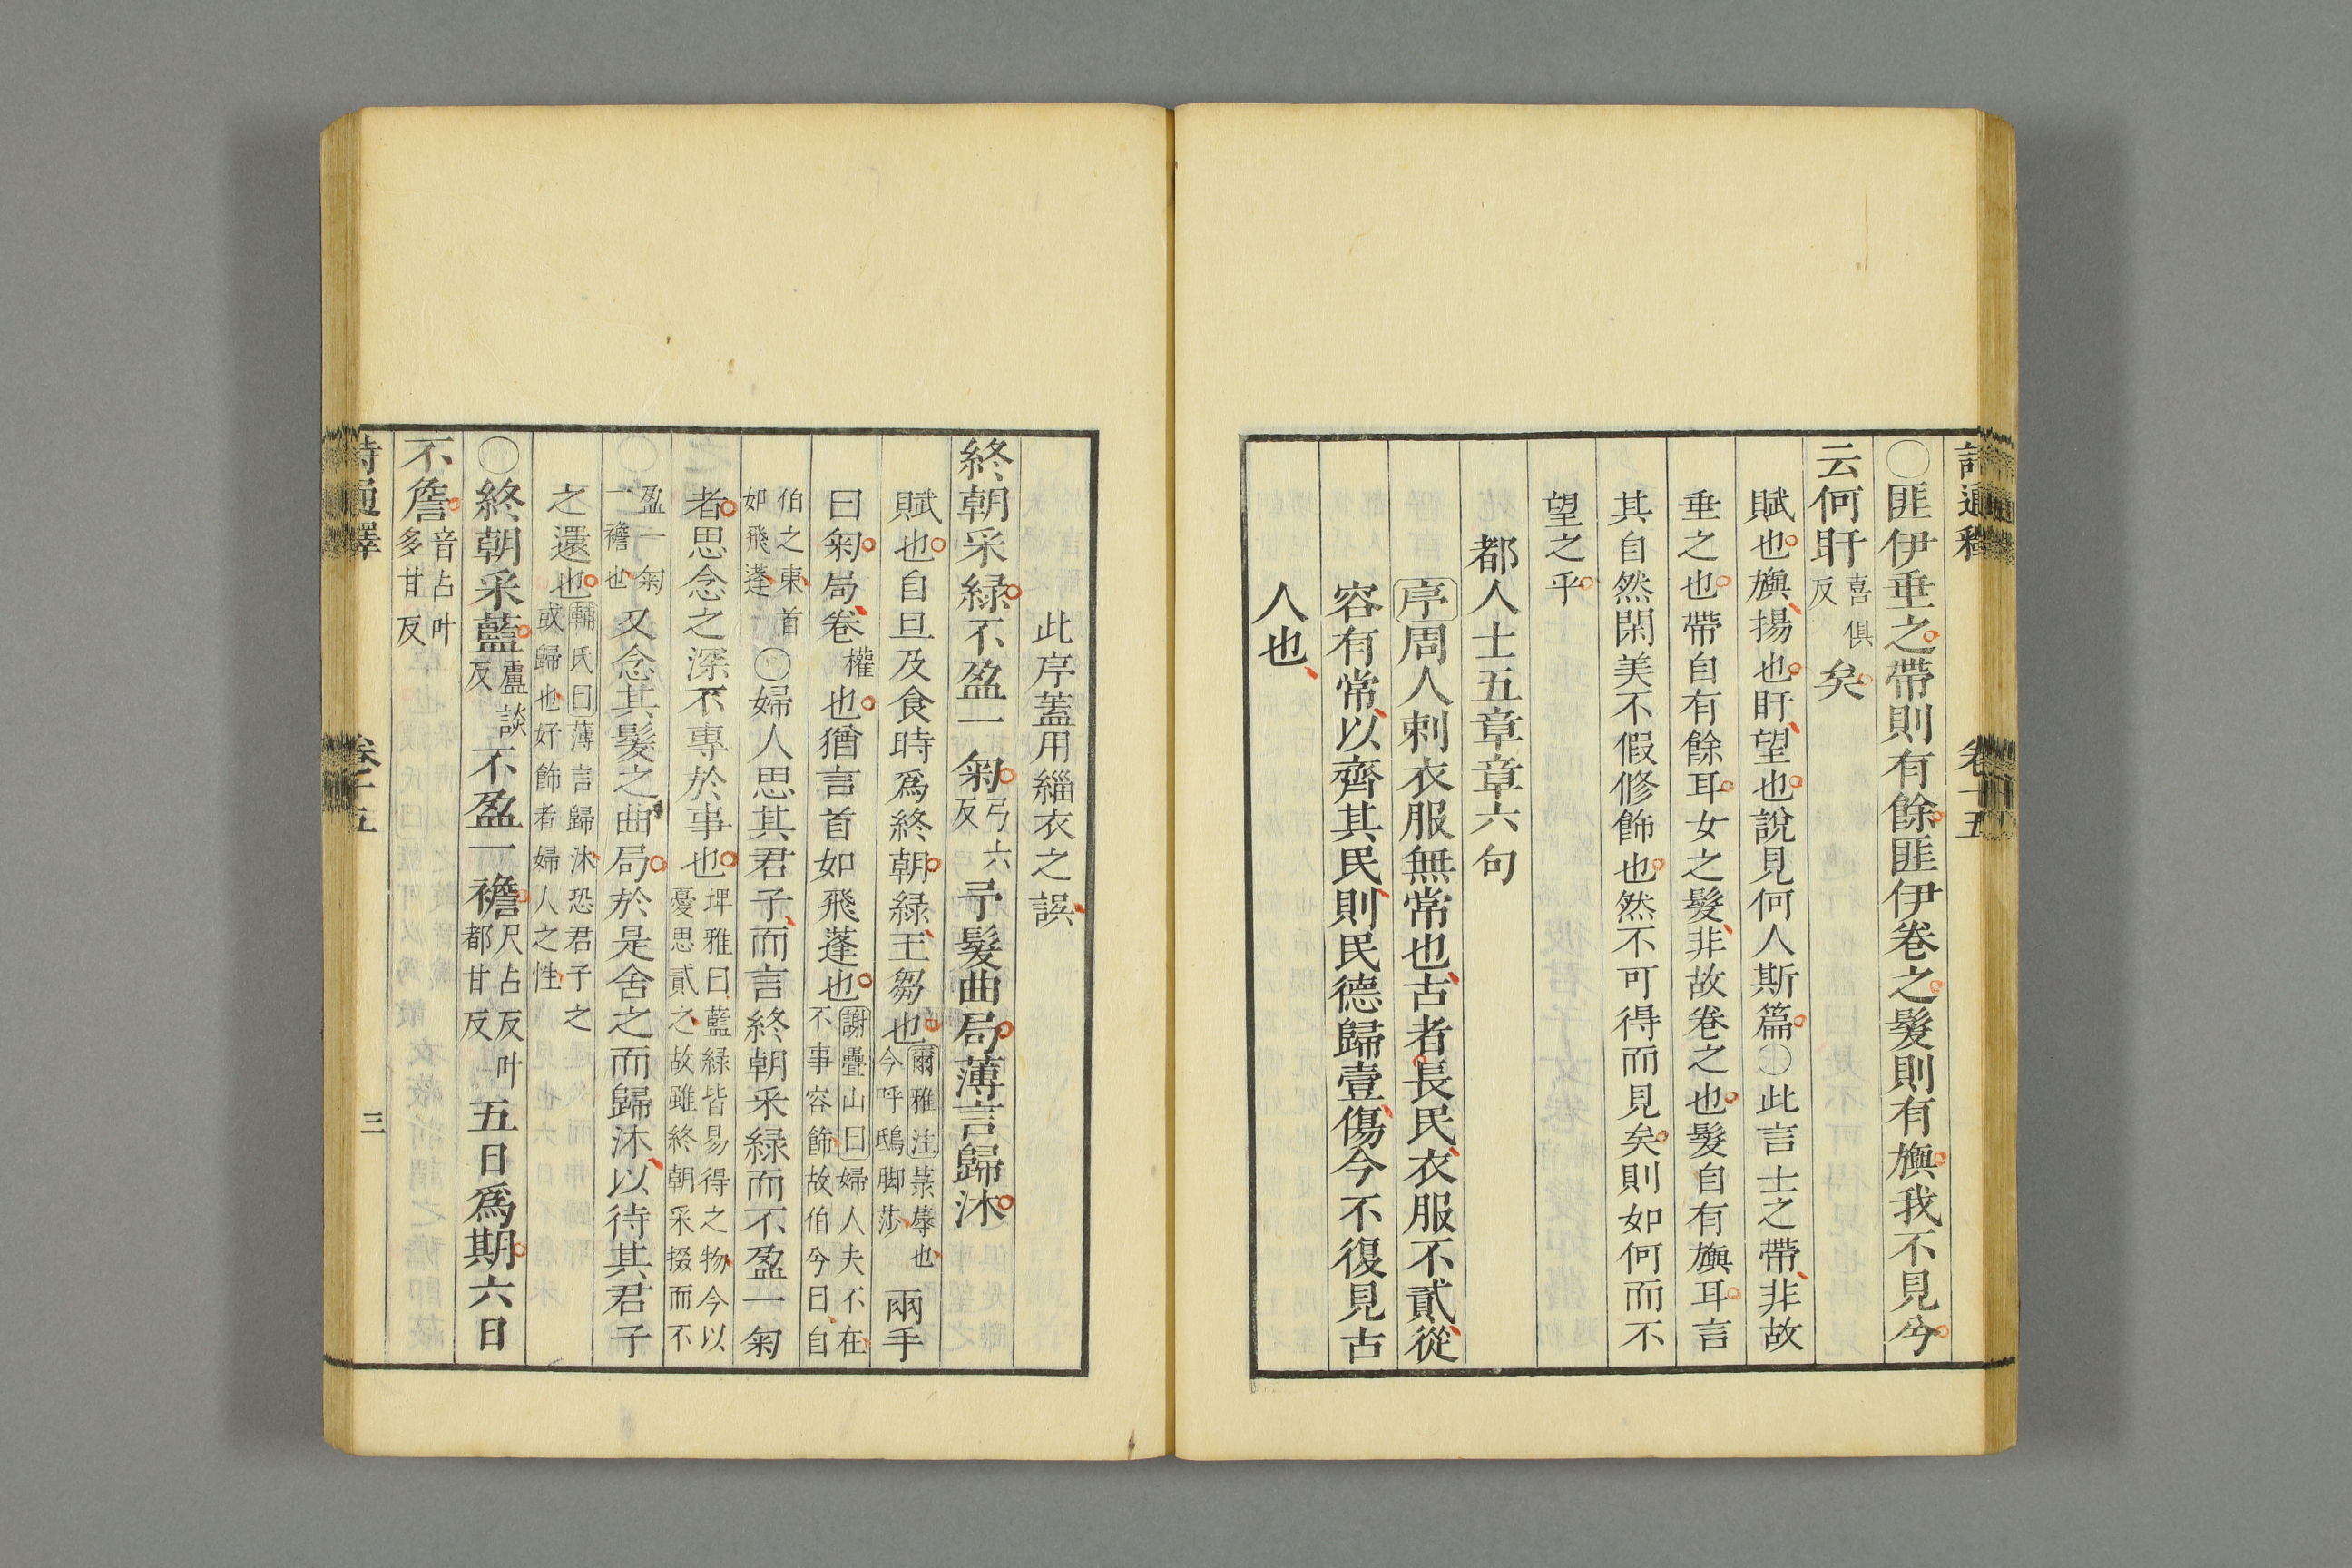 〇匪伊垂之帶則有餘匪伊卷之髮則有旟我不見兮
云何盱喜俱反矣
賦也旟揚也盱望也說見何人斯篇〇此言士之帶非故
垂之也帶自有餘耳女之髮非故卷之也髮自有旟耳言
其自然閑美不假修飾也然不可得而見矣則如何而不
望之乎
都人士五章章六句
序周人刺衣服無常也古者長民衣服不貳從
容有常以齊其民則民德歸壹傷今不復見古
人也
此序蓋用緇衣之誤
終朝采緑不盈一匊弓六反予髮曲局薄言歸沐
賦也自旦及食時爲終朝緑王芻也爾雅注菉蓐也今呼鴟脚莎兩手
曰匊局卷權也猶言首如飛蓬也謝疊山曰婦人夫不在不事容飾故伯兮曰自
伯之東首如飛蓬〇婦人思其君子而言終朝采緑而不盈一匊
者思念之深不專於事也埤雅曰藍緑皆易得之物今以憂思貳之故雖終朝采掇而不
盈一匊一襜也又念其髮之曲局於是舍之而歸沐以待其君子
之還也輔氏曰薄言歸沐恐君子之或歸也好飾者婦人之性
〇終朝采藍盧談反不盈一襜尺占反叶都甘反五日爲期六日
不詹音占叶多甘反
卷十五
三